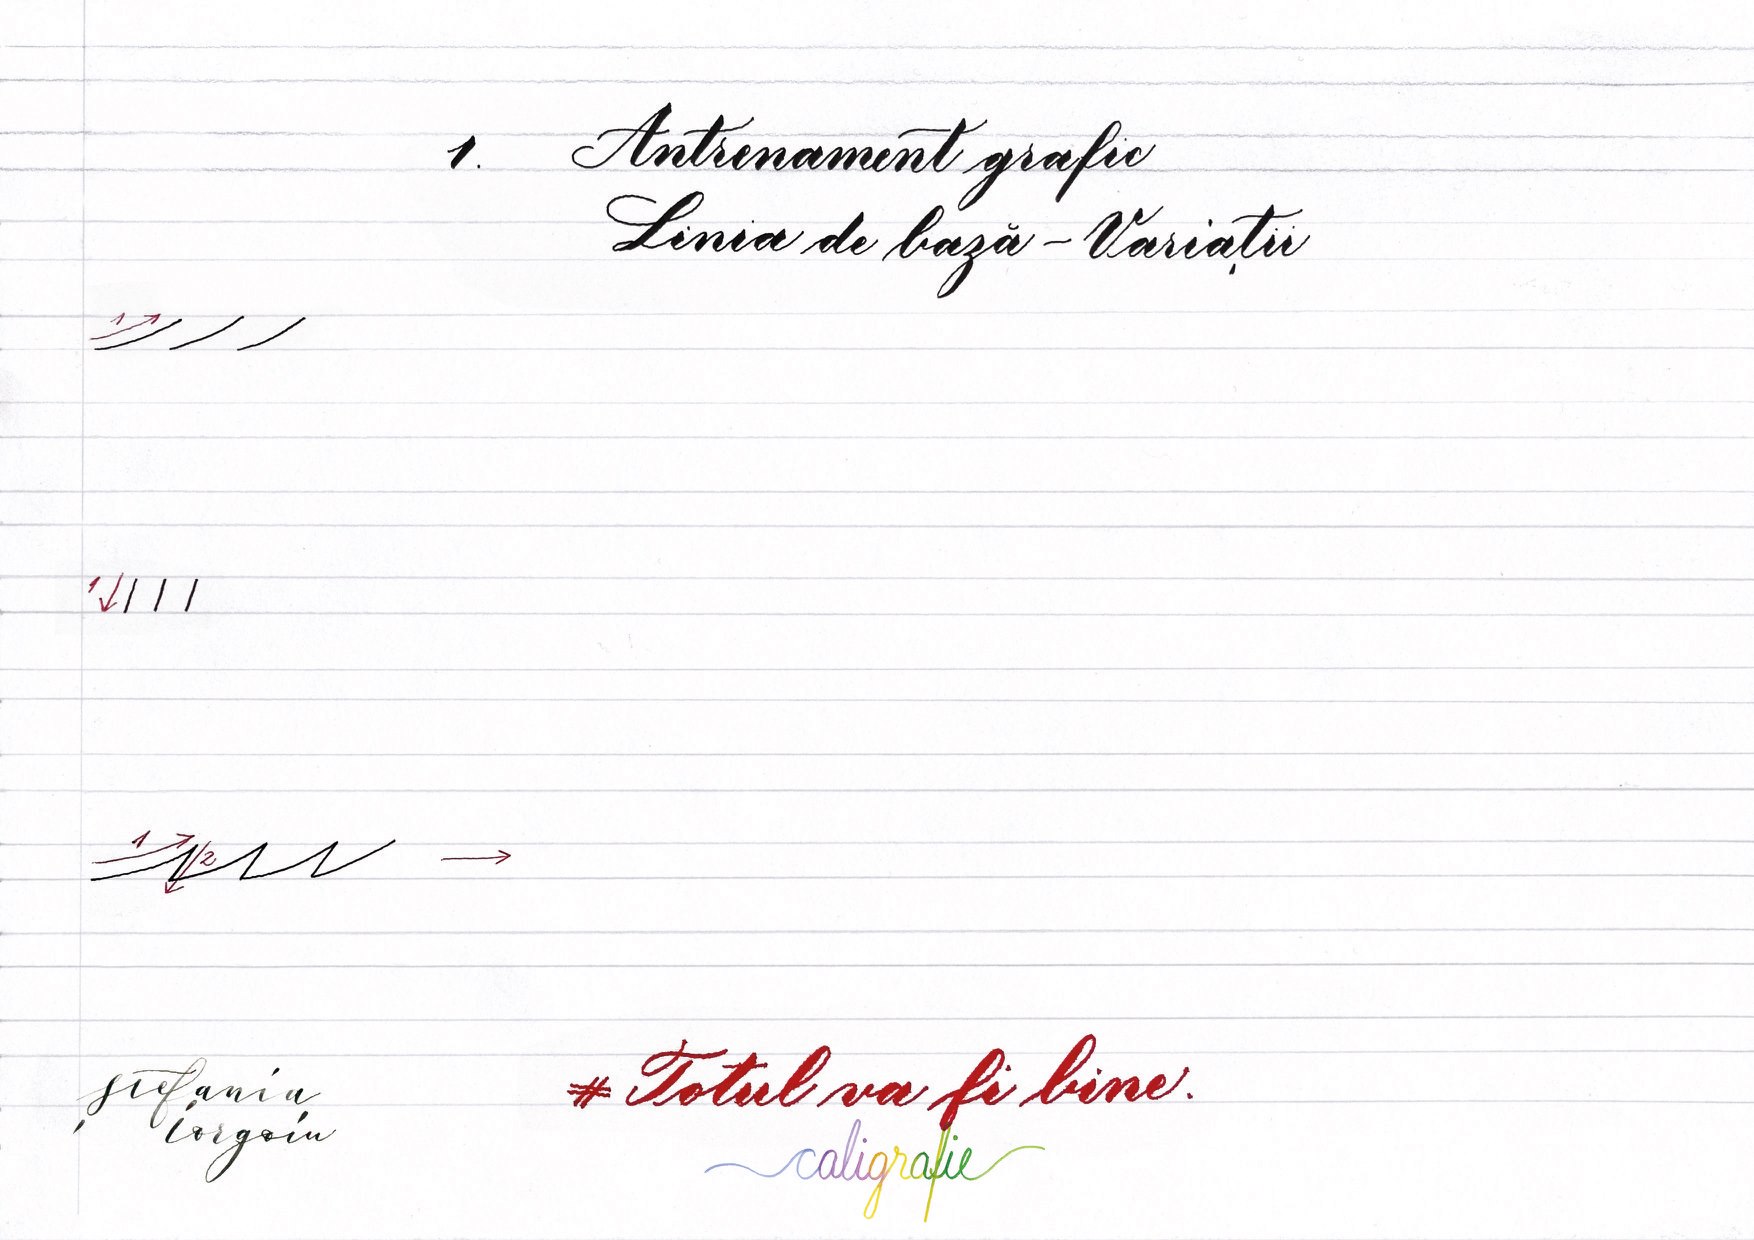 1. Antrenament grafic
Linia de bază - Variații
1
1
1 2
# Totul va fi bine.
Ștefania
Iorgoiu
caligrafie